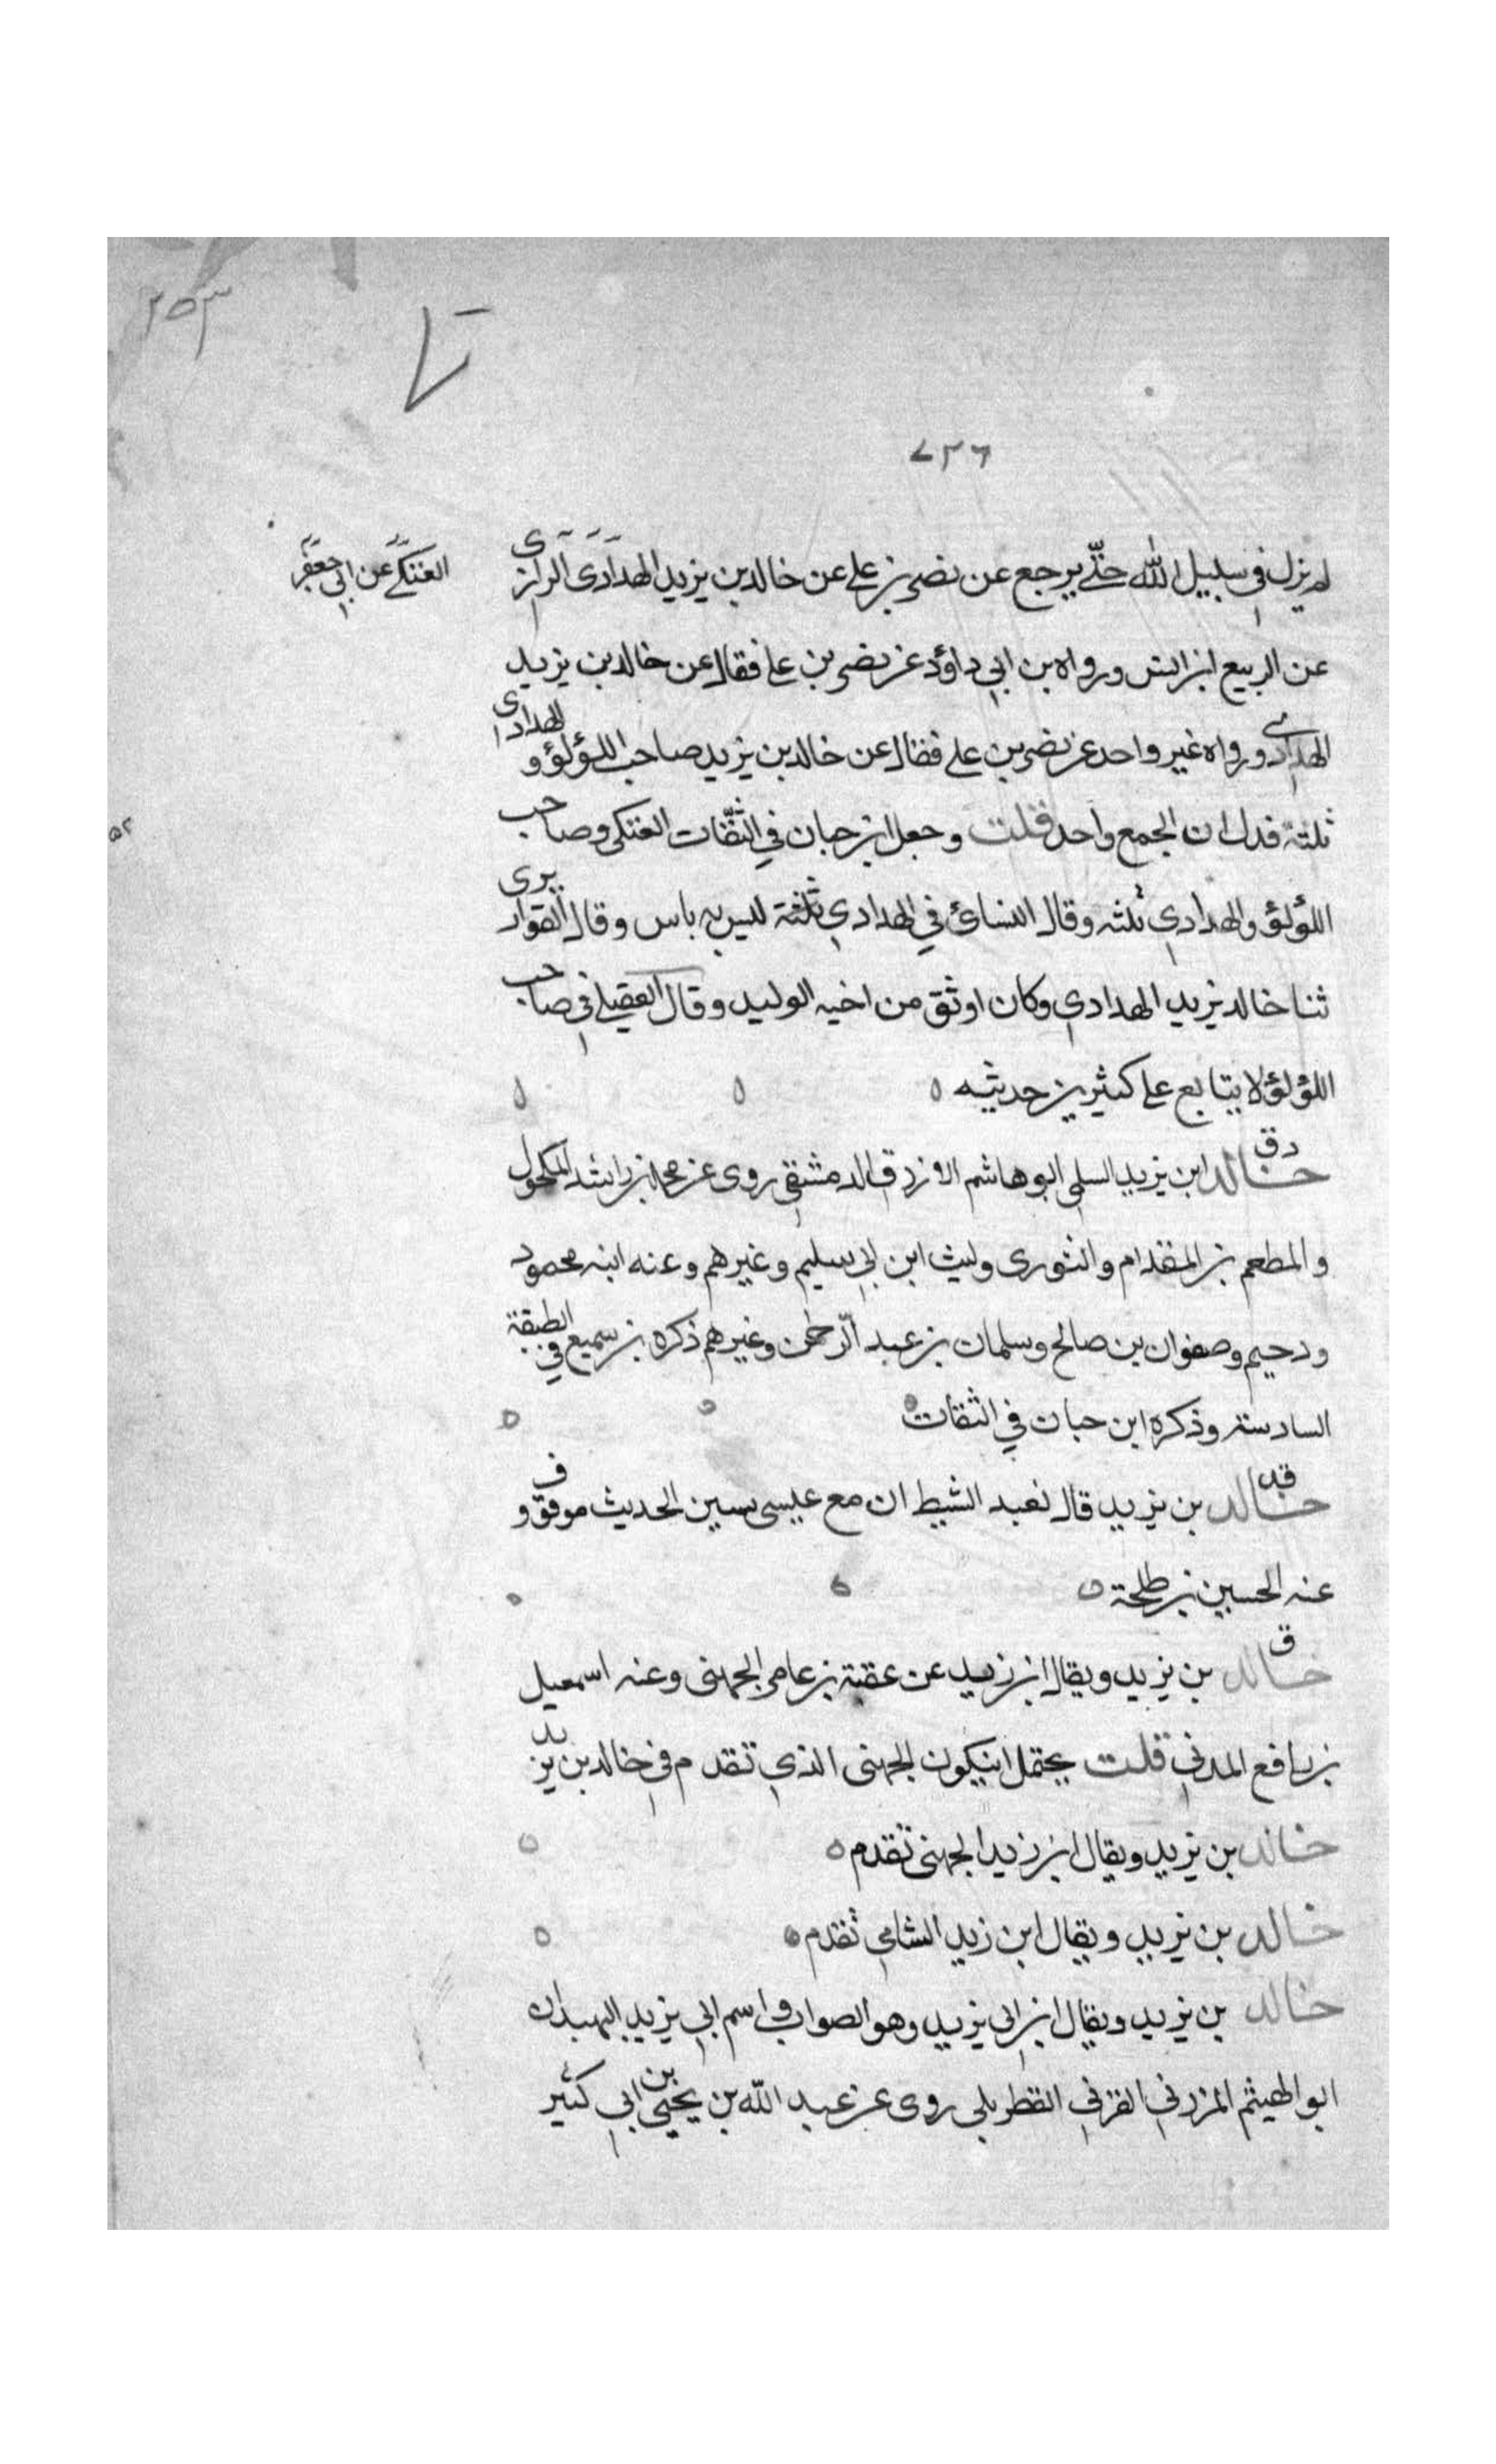 ٢٥٣
٧٢٦
لم يزل في سبيل الله حتّى يرجع عن نصر بن علي عن خالد بن يزيد الهدادى الرازى
العتكي عن ابي جعفر
عن الربيع ابن انس ورواه بن ابي داؤد عن نصر بن علي فقال عن خالد بن يزيد
الهدادي ورواه غير واحد عن نصر بن علي فقال عن خالد بن يزيد صاحب اللؤلؤ و الهدادى
ثلثة فدل ان الجمع واحد قلت وجعل ابن حبان في الثقات العتكى وصاحب
اللؤلؤ والهدادي ثلثه وقال النسائ في الهدادي ثلثة ليس به باس وقال القواريرى
ثنا خالد يزيد الهدادي وكان اوثق من اخيه الوليد وقال العقيلي في صاحب
اللؤلؤ لا يتابع علي كثير من حديثه
دق
خالد ابن يزيد السلمي ابو هاشم الازرق الدمشقي روى عن محمد بن راشد المكحول
والمطعم بن المقدام والثورى وليث ابن ابي سليم وغيرهم وعنه ابنه محمود
ودحيم وصفوان بن صالح وسلمان بن عبد الرّحمٰن وغيرهم ذكره بن سميع في الطبقة
السادسة وذكره ابن حبان في الثقات
قد
خالد بن يزيد قال نعبد الشيط ان مع عيسى سين الحديث موقوف و
عنه الحسين بن طلحة
ق
خالد بن يزيد ويقال ابن زيد عن عقبة بن عامر الجهنى وعنه اسمعيل
بن رافع المدني قلت يحتمل انيكون الجهنى الذي تقدم في خالد بن يزيد
خالد بن يزيد ويقال ابن زيد الجهنى تقدم
خالد بن يزيد ويقال ابن زيد الشامي تقدم
خالد بن يزيد ويقال ابن ابى يزيد وهو الصواب واسم ابي يزيد البهبذان
ابو الهيثم المزرفي القرني القطربلي روى عن عبد الله بن يحيى بن ابي كثير